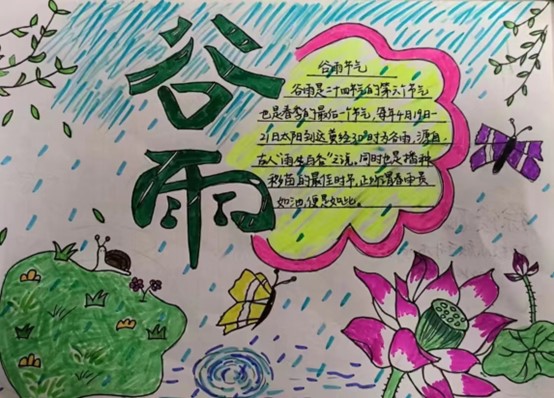 谷雨
谷雨节气
谷雨是二十四节气的第六个节气
也是春季的最后一个节气,每年4月19日-
21日太阳到达黄经30°时为谷雨,源自
古人"雨生百谷"之说,同时也是播种
移苗的最佳时节,正所谓春雨
如油,便是如此。